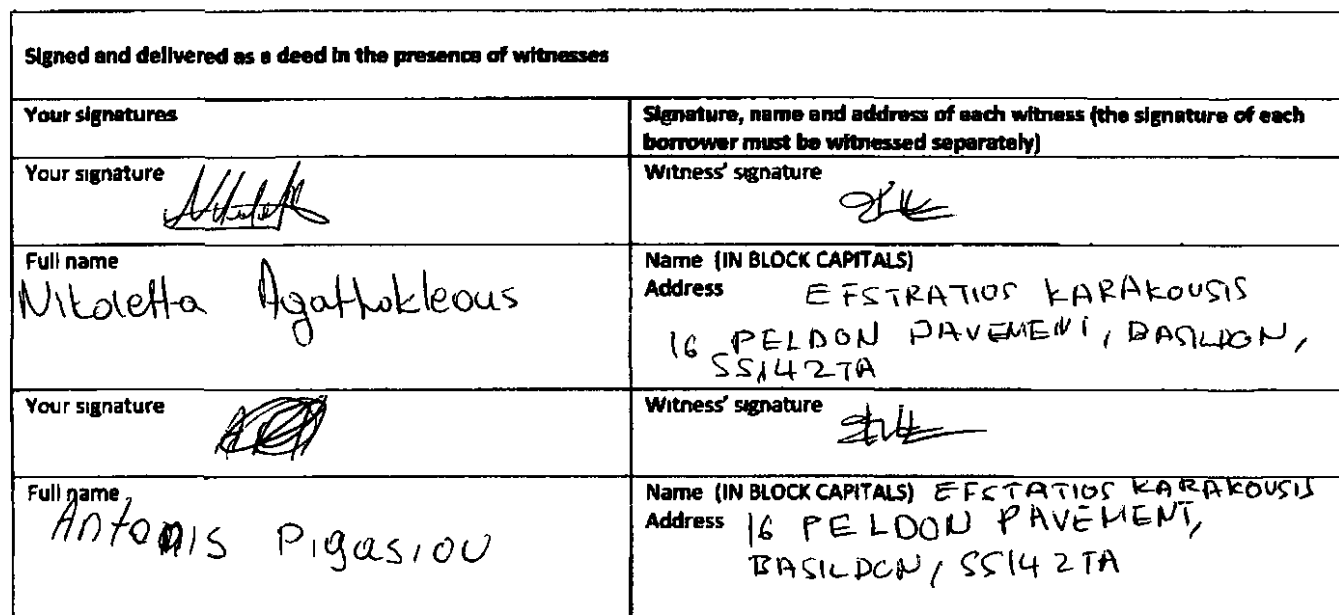 Signed and delivered as a deed in the presence of witnesses
Your signatures
Signature, name and address of each witness (the signature of each
borrower must be witnessed separately)
Your signature
Witness' signature
Full name
Nikoletta Agathokleous
Name (IN BLOCK CAPITALS)
Address EFSTRATIOS KARAKOUSIS
16 PELDON PAVEMENT, BASILDON,
SS142TA
Your signature
Witness' signature
Full name
Antonis Pigasiou
Name (IN BLOCK CAPITALS) EFSTATIOS KARAKOUSIS
Address 16 PELDON PAVEMENT,
BASILDON, SS14 2TA